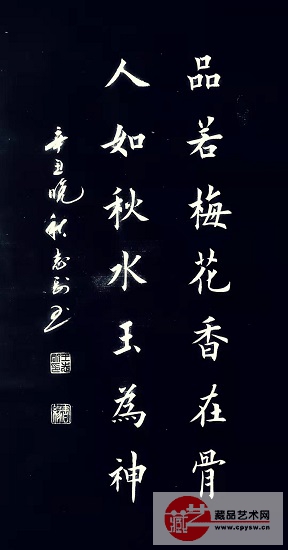 品若梅花香在骨
人如秋水玉為神
辛丑晚秋志刚书
藏艺
藏品艺术网
www.cpysw.cn